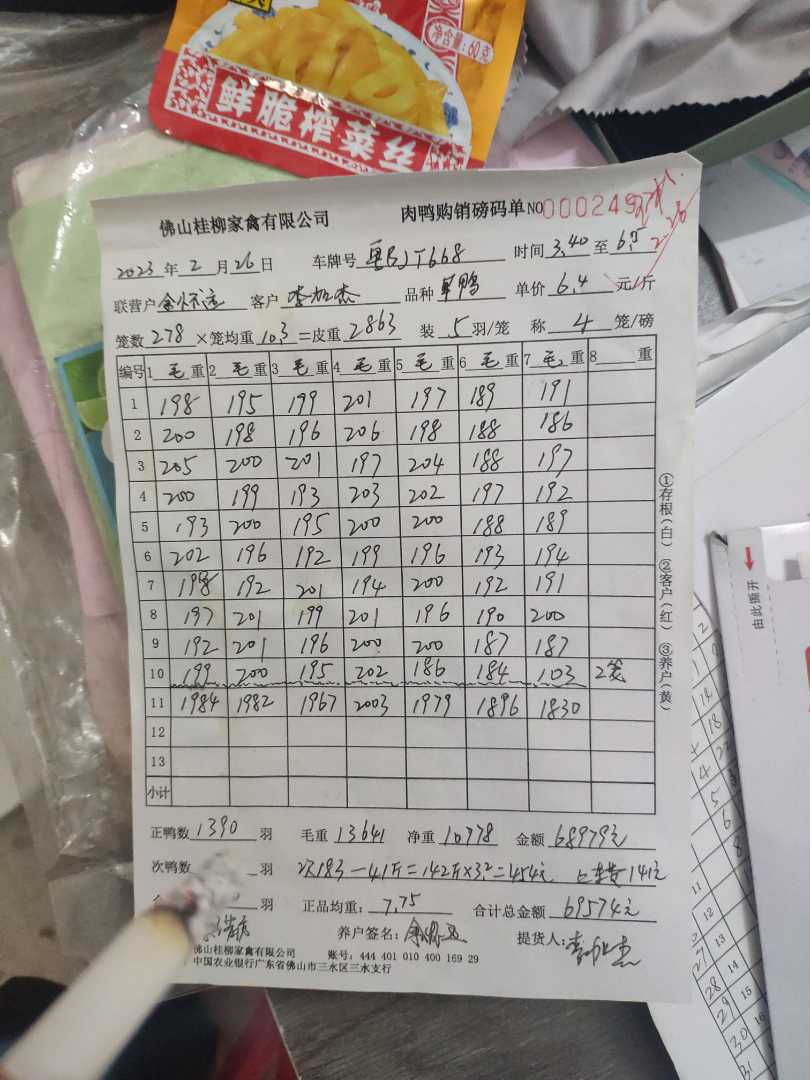 净含量:60克
鲜脆榨菜丝
佛山桂柳家禽有限公司 肉鸭购销磅码单 NO 000249
2023 年 2 月 26 日 车牌号 粤 T668 时间 3.40 至 6.5
2.26
联营户 客户 李 杰 品种 单价 6.4 元/斤
笼数 278 ×笼均重 10.3 =皮重 2863 装 5 羽/笼 称 4 笼/磅
编号 1 毛 重 2 毛 重 3 毛 重 4 毛 重 5 毛 重 6 毛 重 7 毛 重 8 重
1 198 195 199 201 197 189 191
2 200 198 196 206 198 188 186
3 205 200 201 197 204 188 197
4 200 199 193 203 202 197 192
5 193 200 195 200 200 188 189
6 202 196 192 199 196 193 194
7 198 192 201 194 200 192 191
8 197 201 199 201 196 190 200
9 192 201 196 200 200 187 187
10 199 200 195 202 186 184 103 2笼
11 1984 1982 1967 2003 1979 1896 1830
12
13
小计
①存根(白) ②客户(红) ③养户(黄)
正鸭数 1390 羽 毛重 13641 净重 10778 金额 68979元
次鸭数 羽 次183-41斤=142斤×3.2=454元 141元
羽 正品均重: 7.75 合计总金额 69574元
养户签名: 提货人:
佛山桂柳家禽有限公司 账号: 444 401 010 400 169 29
中国农业银行广东省佛山市三水区三水支行
由此撕开